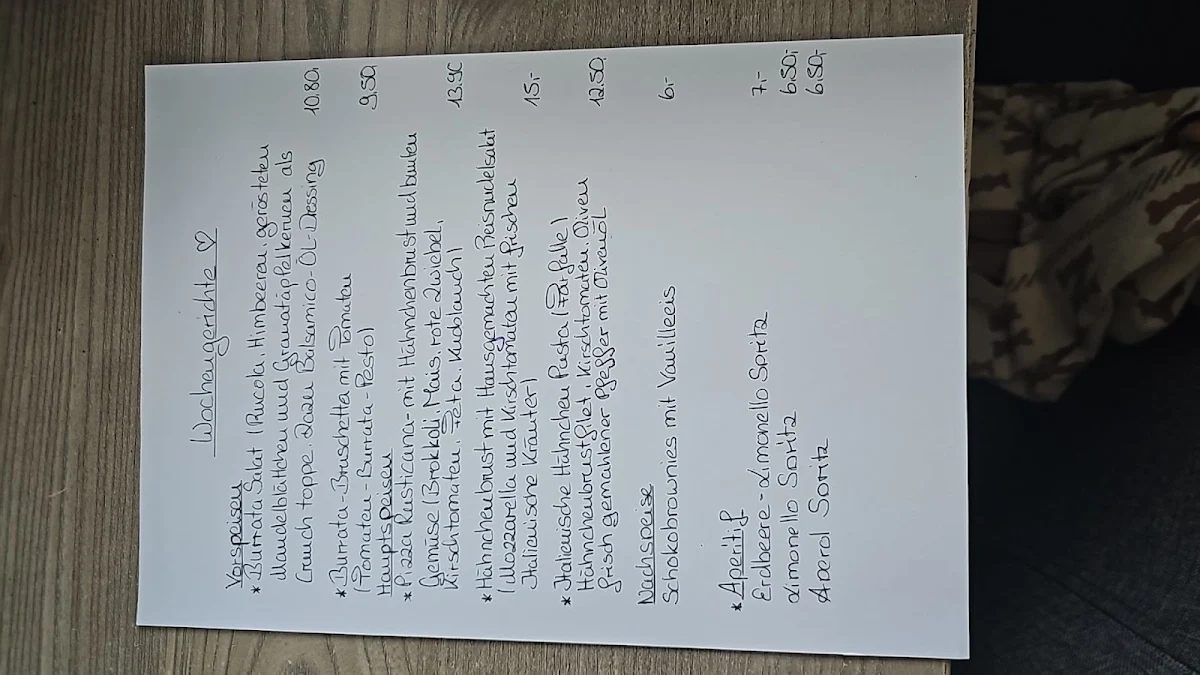 Wochengerichte ♡
Vorspeisen
* Burrata Salat (Rucola, Himbeeren, gerösteten
Mandelblättchen und Granatäpfelkernen als
Crunch toppe. Dazu Balsamico-ÖL-Dressing 10.80,
* Burrata-Bruschetta mit Tomaten
(Tomaten-Burrata-Pesto) 9,50,
Hauptspeisen
* Pizza Rusticana- mit Hähnchenbrust und bunten
Gemüse (Brokkoli, Mais, rote Zwiebel,
Kirschtomaten, Feta, Knoblauch) 13.90
* Hähnchenbrust mit Hausgemachten Reisnudelsalat
(Mozzarella und Kirschtomaten mit frischen
Italienische Kräuter) 15,-
* Italienische Hähnchen Pasta (Farfalle)
Hähnchenbrustfilet, Kirschtomaten, Oliven 12.50,
frisch gemahlener Pfeffer mit OlivenÖL
Nachspeise
Schokobrownies mit Vanilleeis 6,-
* Aperitif
Erdbeere-Limonello Spritz 7,-
Limonello Spritz 6,50,-
Aperol Spritz 6,50,-